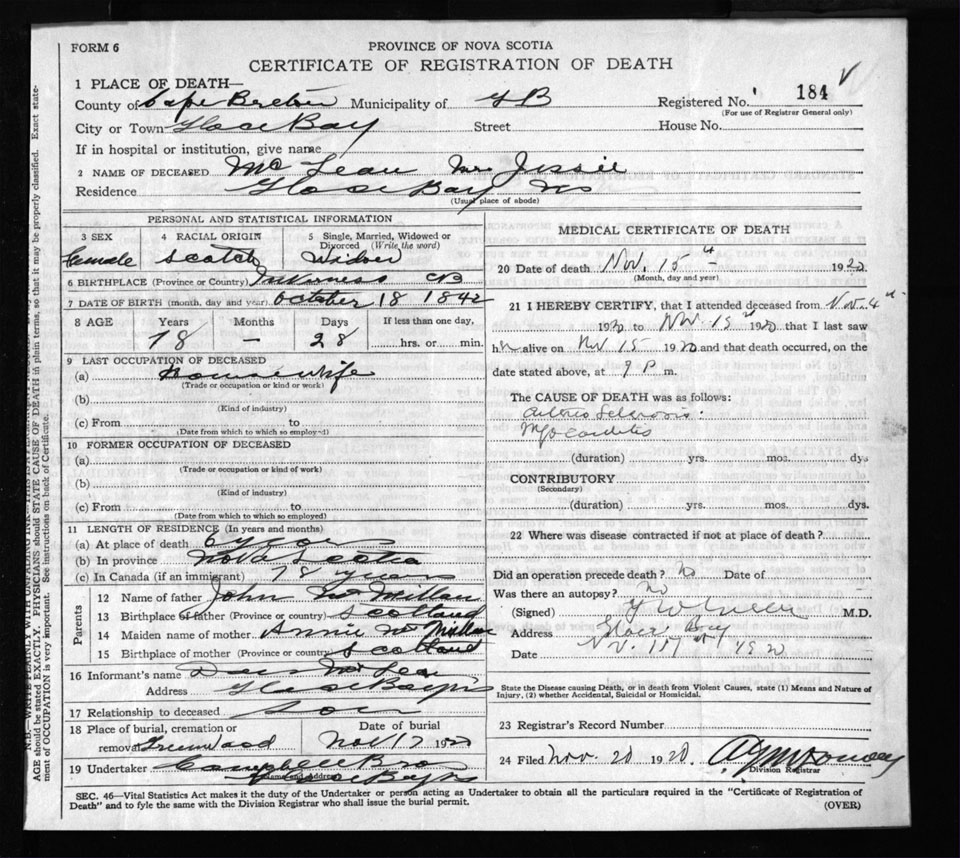 FORM 6
PROVINCE OF NOVA SCOTIA
CERTIFICATE OF REGISTRATION OF DEATH
1 PLACE OF DEATH—
County of Cape Breton Municipality of GB Registered No. 184
(For use of Registrar General only)
City or Town Glace Bay Street House No.
If in hospital or institution, give name
2 NAME OF DECEASED McLean Jessie
Residence Glace Bay NS
(Usual place of abode)
PERSONAL AND STATISTICAL INFORMATION
3 SEX 4 RACIAL ORIGIN 5 Single, Married, Widowed or Divorced (Write the word)
Female Scotch Widow
6 BIRTHPLACE (Province or Country) Inverness CB
7 DATE OF BIRTH (month, day and year) October 18 1842
8 AGE Years Months Days If less than one day,
78 — 28 hrs. or min.
9 LAST OCCUPATION OF DECEASED
(a) Housewife
(Trade or occupation or kind of work)
(b)
(Kind of industry)
(c) From to
(Date from which to which so employed)
10 FORMER OCCUPATION OF DECEASED
(a)
(Trade or occupation or kind of work)
(b)
(Kind of industry)
(c) From to
(Date from which to which so employed)
11 LENGTH OF RESIDENCE (In years and months)
(a) At place of death 6 years
(b) In province Nova Scotia
(c) In Canada (if an immigrant) 78 years
Parents
12 Name of father John McMillan
13 Birthplace of father (Province or country) Scotland
14 Maiden name of mother Annie
15 Birthplace of mother (Province or country) Scotland
16 Informant's name McLean
Address Glace Bay NS
17 Relationship to deceased Son
18 Place of burial, cremation or removal Greenwood Date of burial Nov 17 1920
19 Undertaker Campbell Bros
(Name and address) Glace Bay NS
MEDICAL CERTIFICATE OF DEATH
20 Date of death Nov. 15th 1920
(Month, day and year)
21 I HEREBY CERTIFY, that I attended deceased from Nov. 4th
1920 to Nov. 15th 1920 that I last saw
her alive on Nov 15 1920 and that death occurred, on the
date stated above, at 9 P m.
The CAUSE OF DEATH was as follows:
Arterio Sclerosis.
Myocarditis
(duration) yrs. mos. dys
CONTRIBUTORY
(Secondary)
(duration) yrs. mos. dys.
22 Where was disease contracted if not at place of death?
Did an operation precede death? No Date of
Was there an autopsy? No
(Signed) M.D.
Address Glace Bay
Date Nov. 17th 1920
State the Disease causing Death, or in death from Violent Causes, state (1) Means and Nature of
Injury, (2) whether Accidental, Suicidal or Homicidal.
23 Registrar's Record Number
24 Filed Nov. 20 1920
Division Registrar
SEC. 46—Vital Statistics Act makes it the duty of the Undertaker or person acting as Undertaker to obtain all the particulars required in the "Certificate of Registration of
Death" and to fyle the same with the Division Registrar who shall issue the burial permit.
(OVER)
AGE should be stated EXACTLY. PHYSICIANS should STATE CAUSE OF DEATH in plain terms, so that it may be properly classified. Exact state-
ment of OCCUPATION is very important. See instructions on back of Certificate.